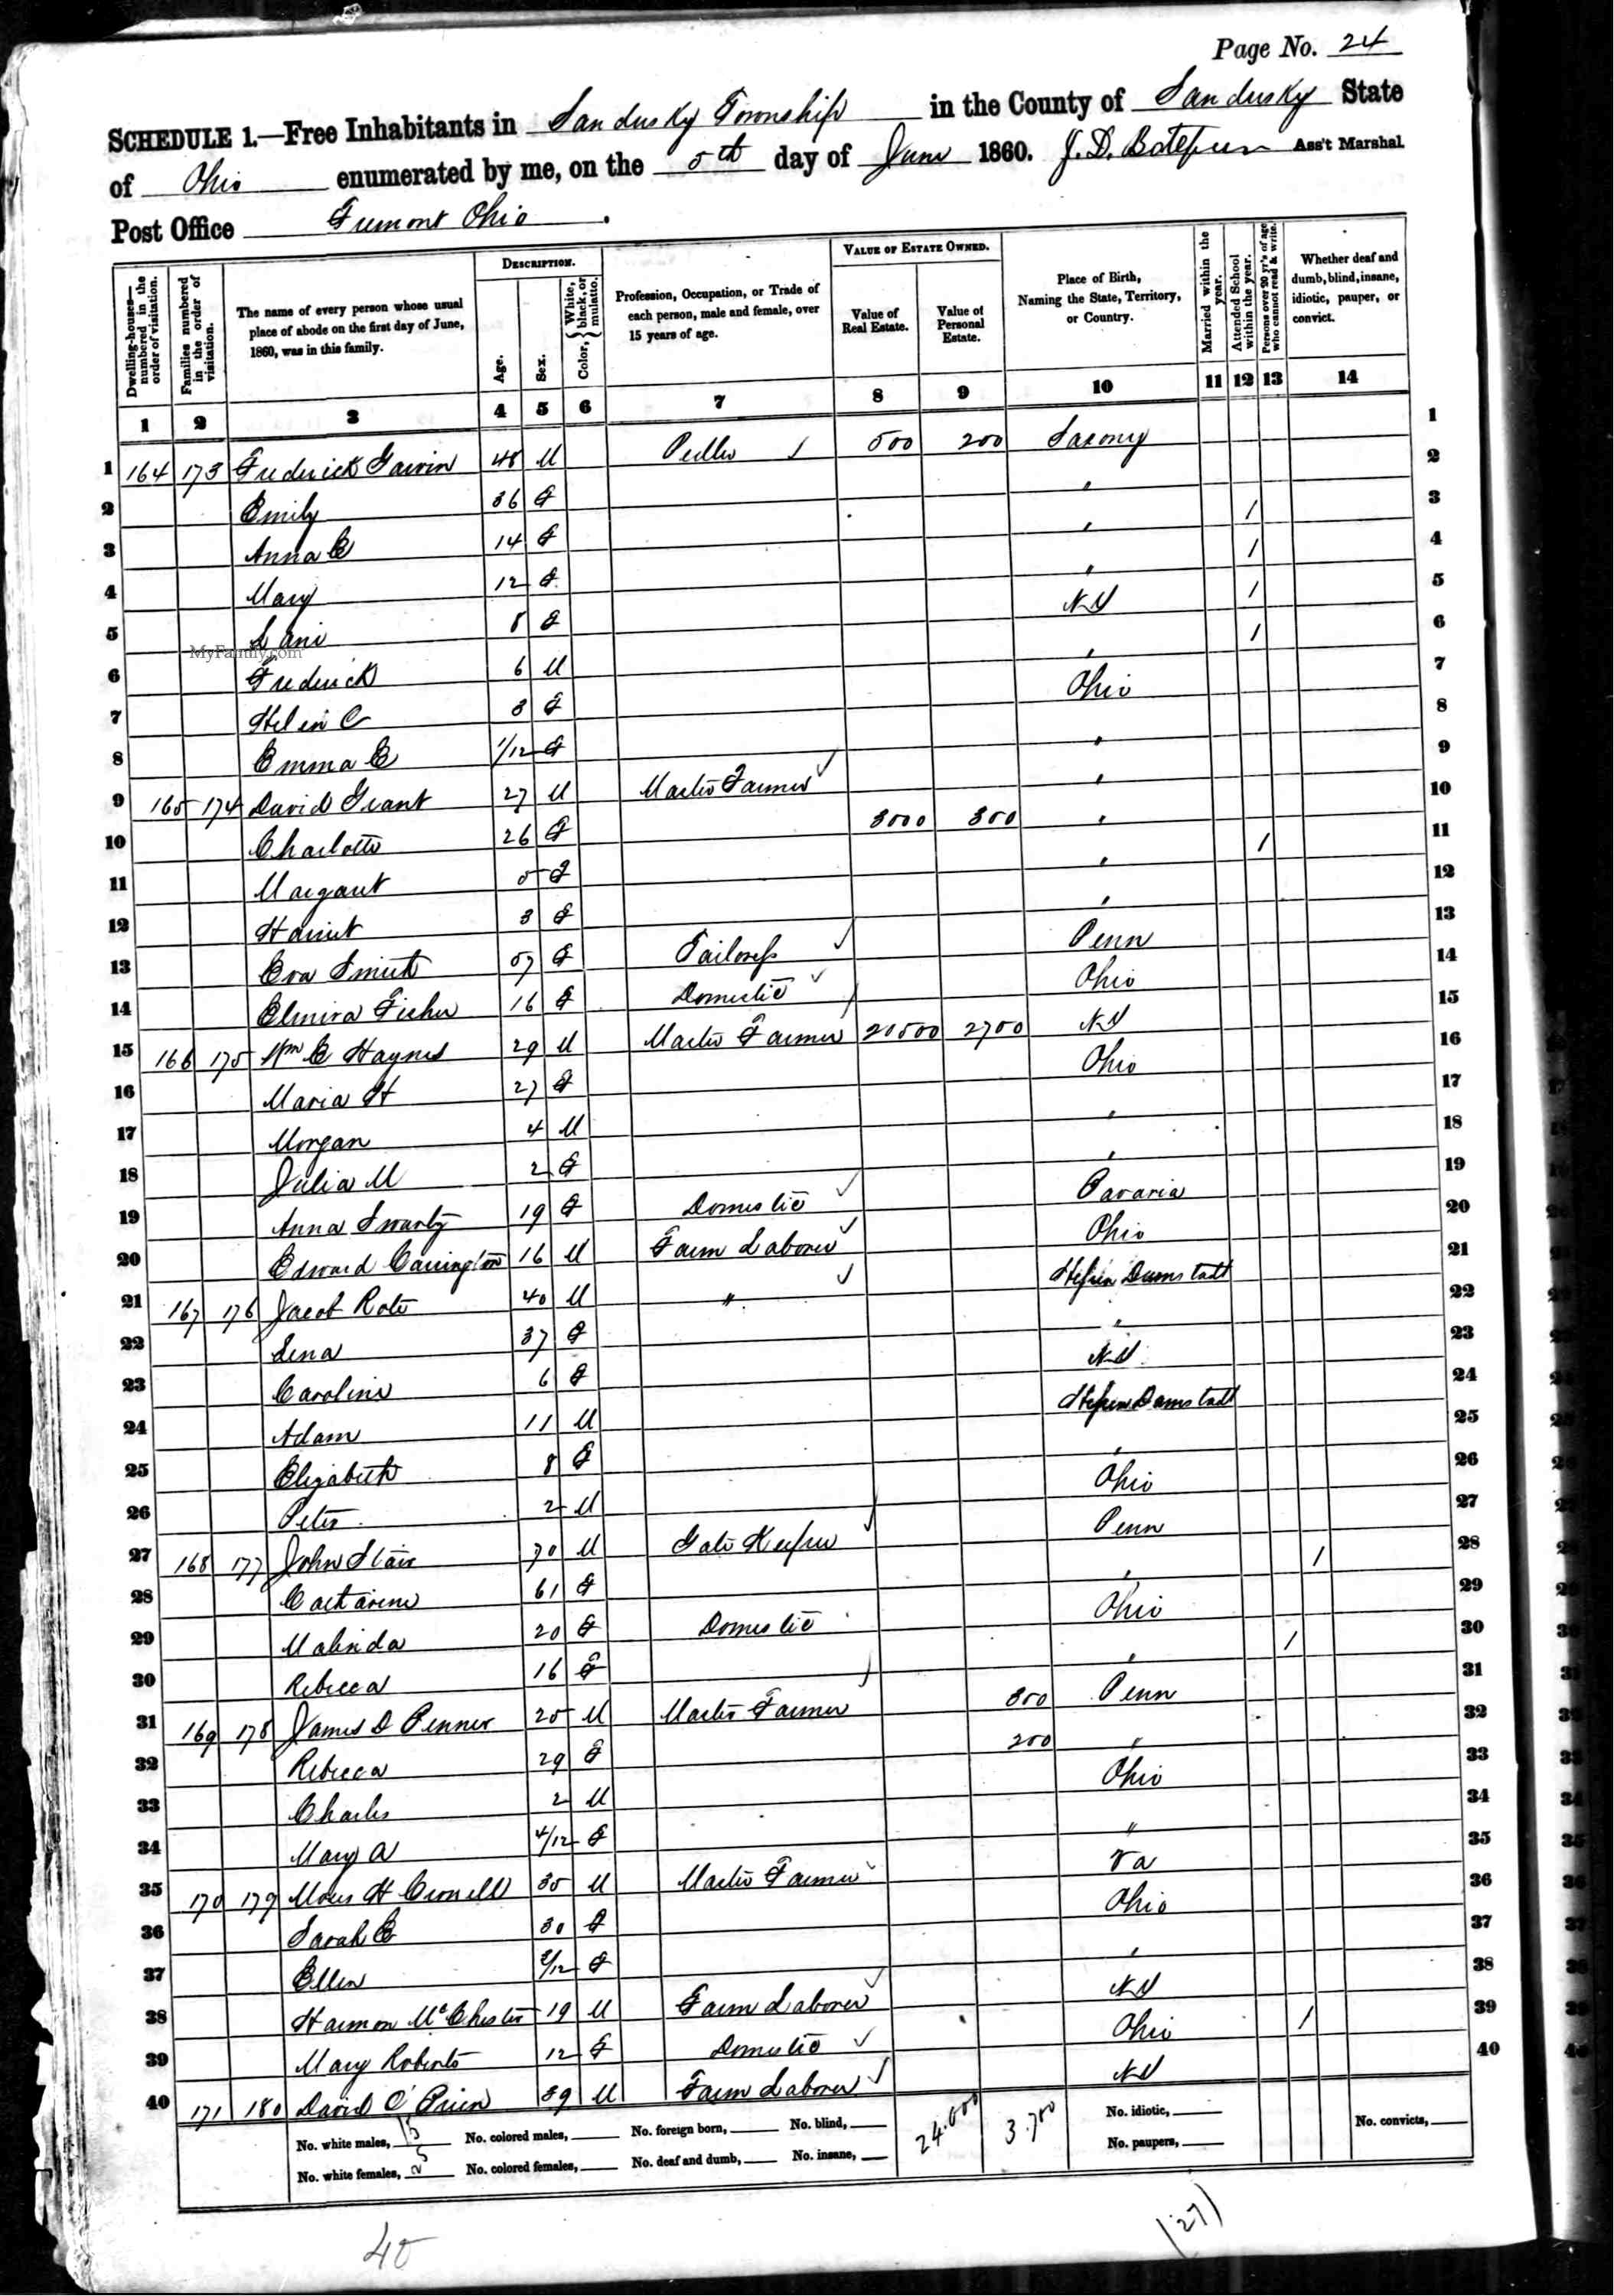 Page No. 24
SCHEDULE 1.—Free Inhabitants in Sandusky Township in the County of Sandusky State
of Ohio enumerated by me, on the 5th day of June 1860. J. D. Ass't Marshal.
Post Office Fremont Ohio.
Dwelling-houses—numbered in the order of visitation.
Families numbered in the order of visitation.
The name of every person whose usual place of abode on the first day of June, 1860, was in this family.
DESCRIPTION.
Age.
Sex.
Color, { White, black, or mulatto.
Profession, Occupation, or Trade of each person, male and female, over 15 years of age.
VALUE OF ESTATE OWNED.
Value of Real Estate.
Value of Personal Estate.
Place of Birth, Naming the State, Territory, or Country.
Married within the year.
Attended School within the year.
Persons over 20 yr's of age who cannot read & write.
Whether deaf and dumb, blind, insane, idiotic, pauper, or convict.
1 2 3 4 5 6 7 8 9 10 11 12 13 14
1 164 173 Frederick 48 M Pedler 500 200 Saxony 1
2 Emily 36 F " 2
3 Anna E 14 F " 1 3
4 Mary 12 F " 1 4
5 8 F N Y 1 5
6 Frederick 6 M " 1 6
7 Helen C 3 F Ohio 7
8 Emma E 1/12 F " 8
9 165 174 David Grant 27 M Master Farmer " 9
10 Charlotte 26 F 3000 300 " 10
11 Margaret 5 F " 1 11
12 Harriet 3 F " 12
13 Eva 57 F Tailoress Penn 13
14 Elmira Fisher 16 F Domestic Ohio 14
15 166 175 Wm E Haynes 29 M Master Farmer 20500 2700 N Y 15
16 Maria H 27 F Ohio 16
17 Morgan 4 M " 17
18 Julia M 2 F " 18
19 Anna Swartz 19 F Domestic Bavaria 19
20 Edward Carrington 16 M Farm Laborer Ohio 20
21 167 176 Jacob Rote 40 M " Hessen Darmstadt 21
22 Lena 37 F " 22
23 Caroline 6 F N Y 23
24 Adam 11 M Hessen Darmstadt 24
25 Elizabeth 8 F " 25
26 Peter 2 M Ohio 26
27 168 177 John Stair 70 M Gate Keeper Penn 27
28 Catharine 61 F " 1 28
29 Malinda 20 F Domestic Ohio 29
30 Rebecca 16 F " 1 30
31 169 178 James D Penner 25 M Master Farmer 800 Penn 31
32 Rebecca 29 F 200 " 32
33 Charles 2 M Ohio 33
34 Mary A 4/12 F " 34
35 170 179 Moses H 35 M Master Farmer Va 35
36 Sarah E 30 F Ohio 36
37 Ellen /12 F " 37
38 Harmon McChester 19 M Farm Laborer N Y 38
39 Mary Roberts 12 F Domestic Ohio 1 39
40 171 180 David O'Brien 39 M Farm Laborer N Y 40
No. white males, 15 No. colored males, No. foreign born, No. blind, 24.000 3.700 No. idiotic, No. convicts,
No. white females, 25 No. colored females, No. deaf and dumb, No. insane, No. paupers,
40 (27)
MyFamily.com